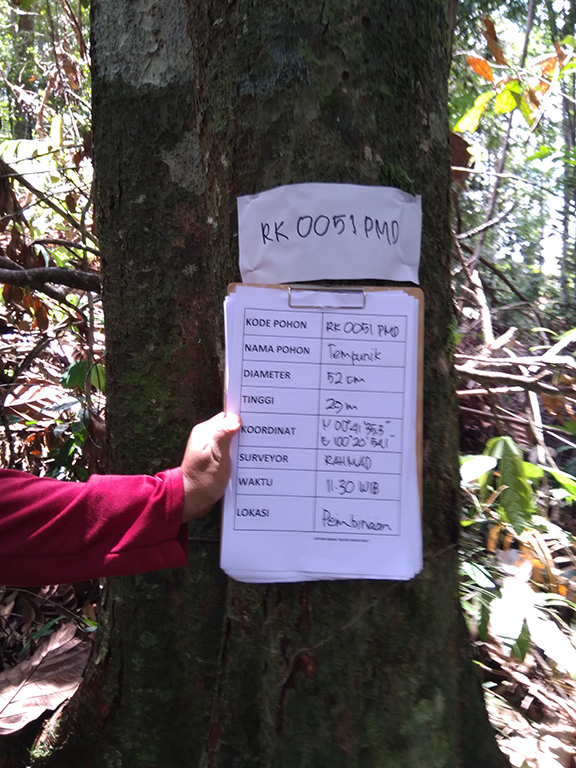 RK 0051 PMD
KODE POHON RK 0051 PMD
NAMA POHON Tempunik
DIAMETER 52 cm
TINGGI 29 m
KOORDINAT N 00°41'35.3"
E 100°20'54.1
SURVEYOR RAHMAD
WAKTU 11.30 WIB
LOKASI Pembinaan